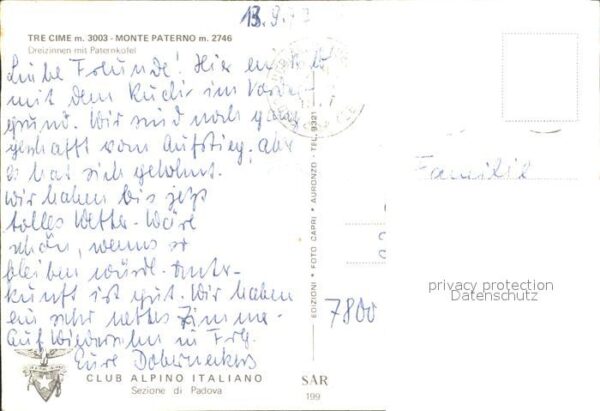 13.9.
TRE CIME m. 3003 - MONTE PATERNO m. 2746
Dreizinnen mit Paternkofel
Liebe Freunde! Hier ein Bild
mit dem Kuckir im Vorder-
grund. Wir sind noch ganz
geschafft vom Aufstieg, aber
es hat sich gelohnt.
Wir haben bis jetzt
tolles Wetter. Wäre
schön, wenns so
bleiben würde. Unter-
kunft ist gut. Wir haben
ein sehr nettes Zimmer.
Auf Wiedersehn in Frbg.
Eure Doberneckers
CLUB ALPINO ITALIANO
Sezione di Padova
EDIZIONI • FOTO CAPRI • AURONZO - TEL. 9321
SAR
199
Familie
7800
privacy protection
Datenschutz